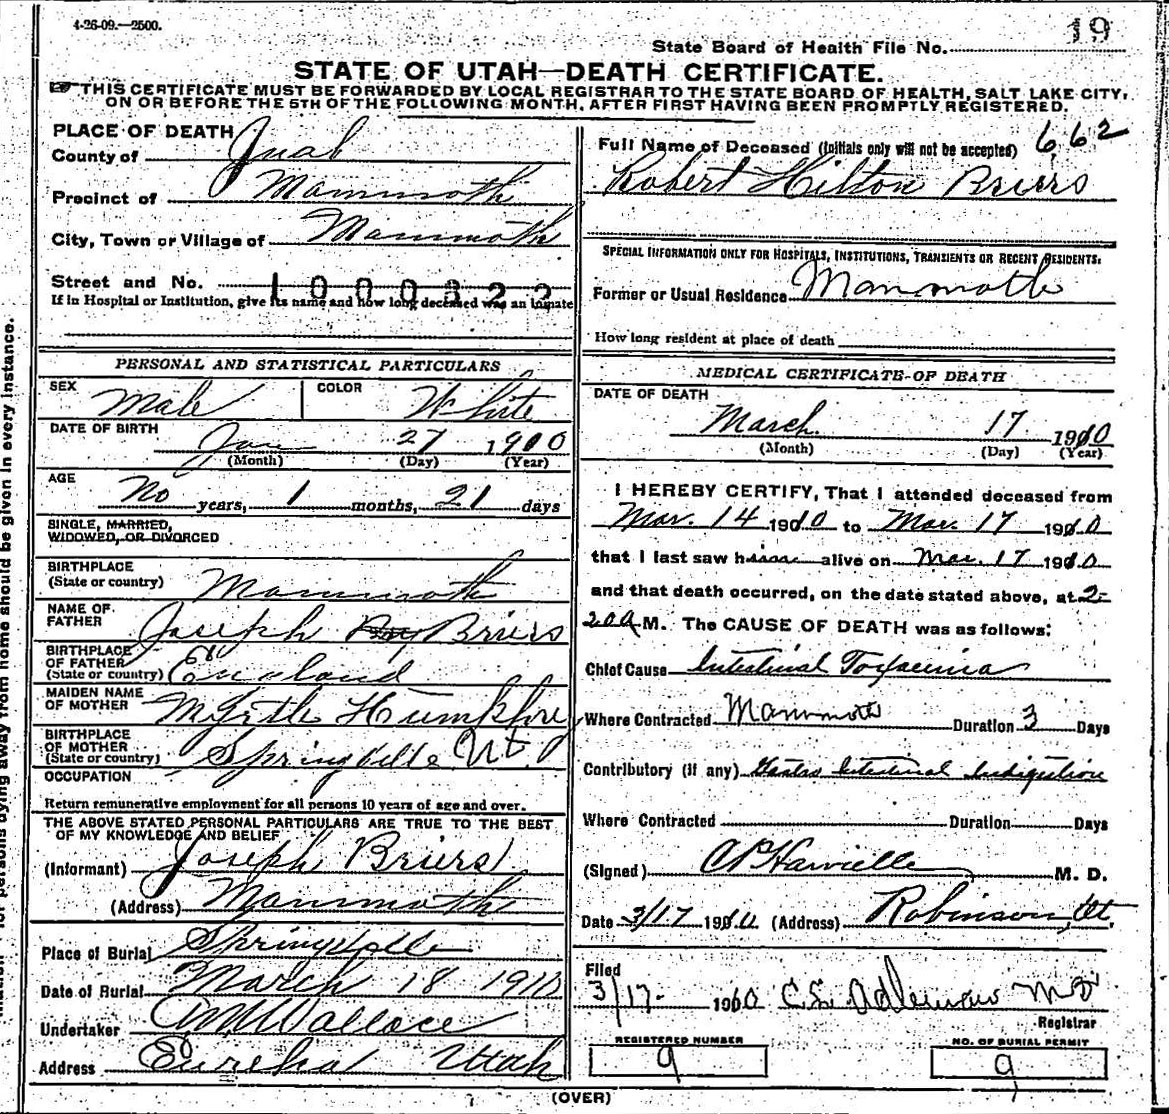 4-26-09.—2500.
19
State Board of Health File No.
STATE OF UTAH—DEATH CERTIFICATE.
THIS CERTIFICATE MUST BE FORWARDED BY LOCAL REGISTRAR TO THE STATE BOARD OF HEALTH, SALT LAKE CITY,
ON OR BEFORE THE 5TH OF THE FOLLOWING MONTH, AFTER FIRST HAVING BEEN PROMPTLY REGISTERED.
PLACE OF DEATH
County of Juab
Precinct of Mammoth
City, Town or Village of Mammoth
Street and No. 1000322
If in Hospital or Institution, give its name and how long deceased was an inmate
PERSONAL AND STATISTICAL PARTICULARS
SEX Male COLOR White
DATE OF BIRTH Jan 27 1910
(Month) (Day) (Year)
AGE No years, 1 months, 21 days
SINGLE, MARRIED,
WIDOWED, OR DIVORCED
BIRTHPLACE
(State or country) Mammoth
NAME OF
FATHER Joseph Briers
BIRTHPLACE
OF FATHER
(State or country) England
MAIDEN NAME
OF MOTHER Myrtle Humphrey
BIRTHPLACE
OF MOTHER
(State or country) Springville Ut.
OCCUPATION
Return remunerative employment for all persons 10 years of age and over.
THE ABOVE STATED PERSONAL PARTICULARS ARE TRUE TO THE BEST
OF MY KNOWLEDGE AND BELIEF
(Informant) Joseph Briers
(Address) Mammoth
Place of Burial Springville
Date of Burial March 18 1910
Undertaker Wallace
Address Eureka Utah
662
Full Name of Deceased (Initials only will not be accepted)
Robert Hilton Briers
SPECIAL INFORMATION ONLY FOR HOSPITALS, INSTITUTIONS, TRANSIENTS OR RECENT RESIDENTS:
Former or Usual Residence Mammoth
How long resident at place of death
MEDICAL CERTIFICATE OF DEATH
DATE OF DEATH
March 17 1910
(Month) (Day) (Year)
I HEREBY CERTIFY, That I attended deceased from
Mar. 14 1910 to Mar. 17 1910
that I last saw him alive on Mar. 17 1910
and that death occurred, on the date stated above, at 2-
20 A M. The CAUSE OF DEATH was as follows:
Chief Cause Intestinal Toxaemia
Where Contracted Mammoth Duration 3 Days
Contributory (if any) Gastro Intestinal Indigestion
Where Contracted Duration Days
(Signed) M. D.
Date 3/17 1910 (Address) Robinson, Ut.
Filed
3/17- 1910 C.E. M D
Registrar
REGISTERED NUMBER
9
NO. OF BURIAL PERMIT
9
(OVER)
away from home should be given in every instance.